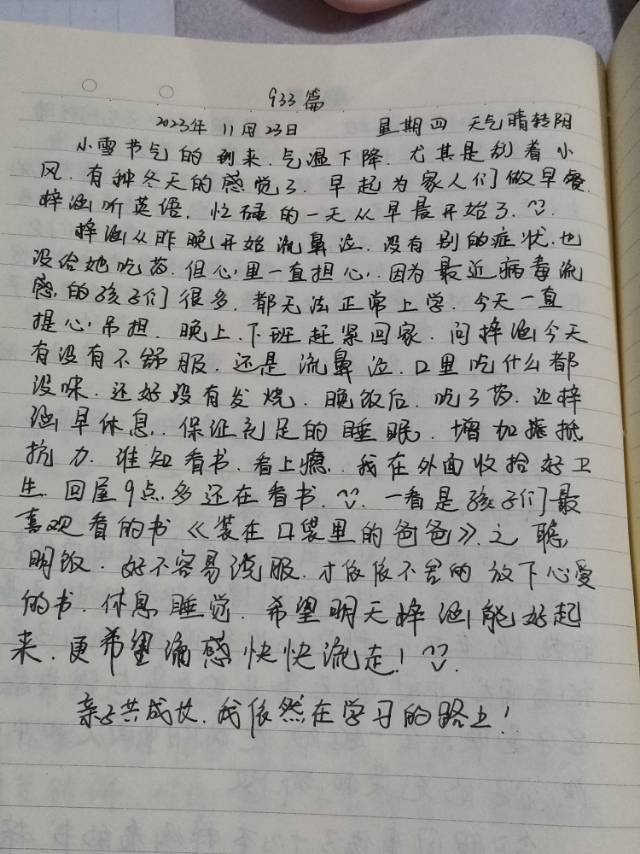 933篇
2023年 11月23日 星期四 天气晴转阴
小雪节气的到来.气温下降.尤其是刮着小
风.有种冬天的感觉了.早起为家人们做早餐.
梓涵听英语.忙碌的一天从早晨开始了.
梓涵从昨晚开始流鼻涕.没有别的症状.也
没给她吃药.但心里一直担心.因为最近病毒流
感的孩子们很多.都无法正常上学.今天一直
提心吊担.晚上.下班赶紧回家.问梓涵今天
有没有不舒服.还是流鼻涕.口里吃什么都
没味.还好没有发烧.晚饭后.吃了药.让梓
涵早休息.保证充足的睡眠.增加抵
抗力.谁知看书.看上瘾.我在外面收拾好卫
生.回屋9点多还在看书.一看是孩子们最
喜观看的书《装在口袋里的爸爸》之聪
明饭.好不容易说服.才依依不舍的放下心爱
的书.休息睡觉.希望明天梓涵能好起
来.更希望流感快快流走!
亲子共成长.我依然在学习的路上!